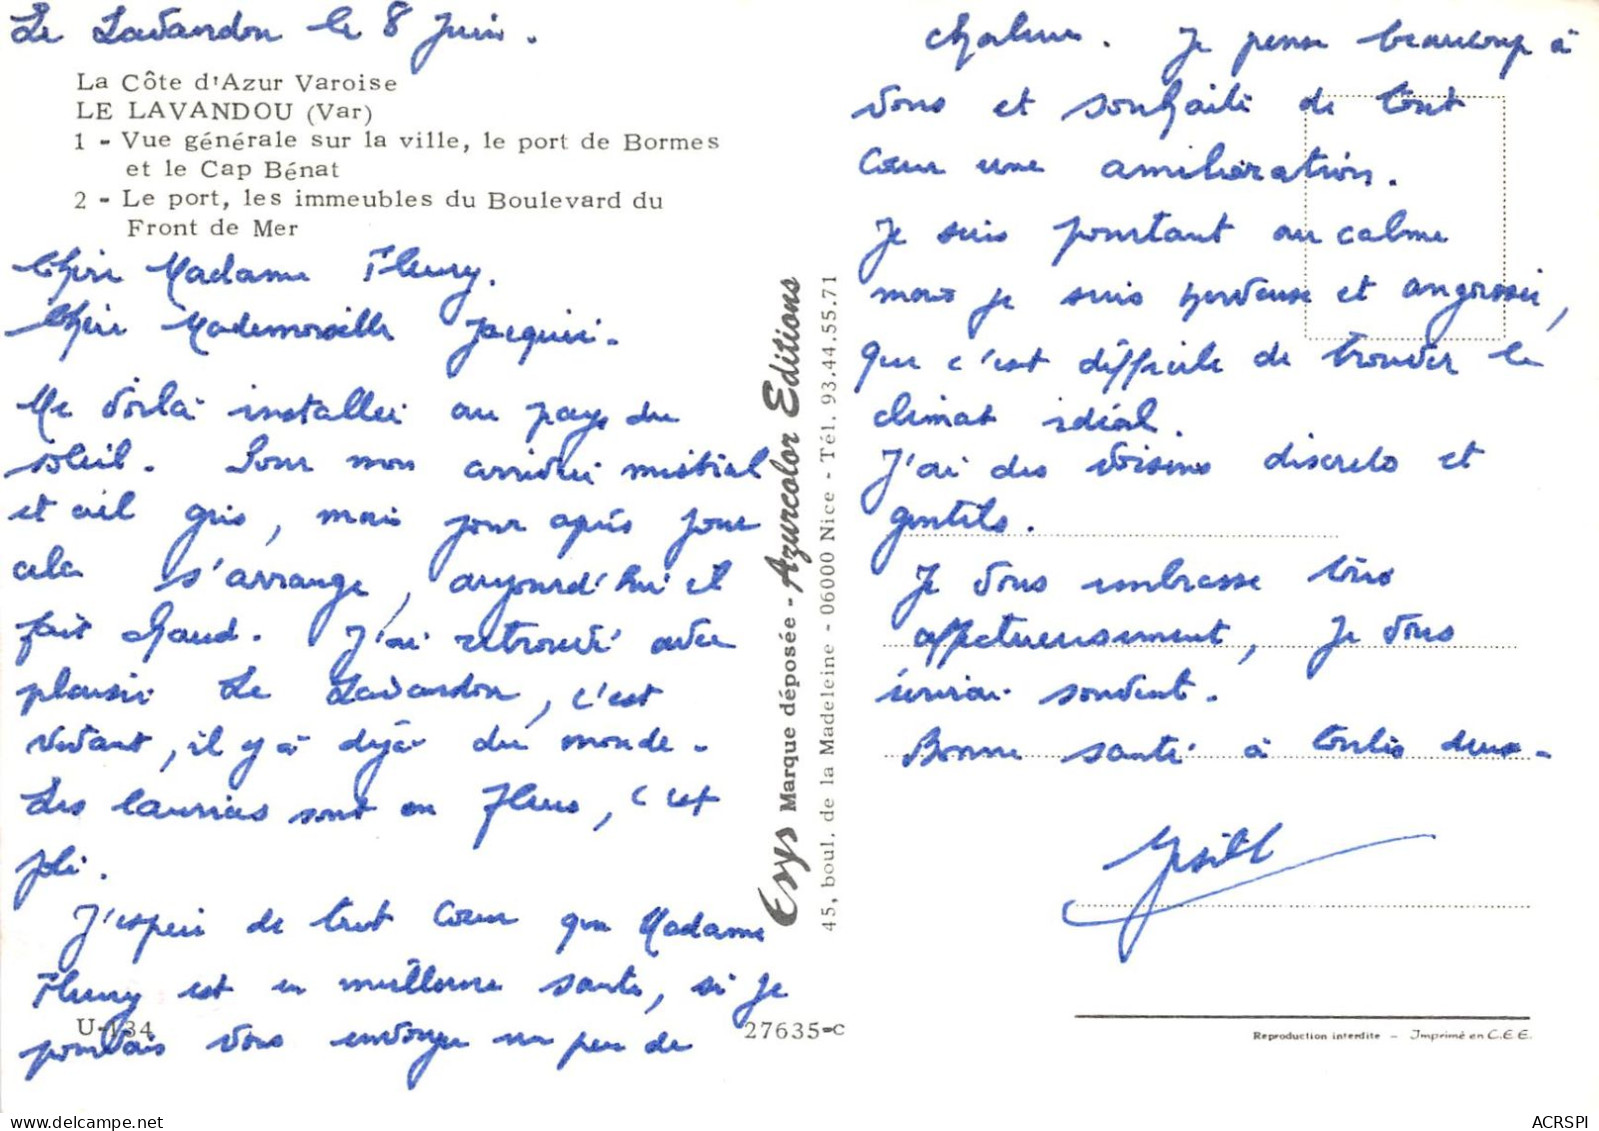 Le Lavandou le 8 Juin.
La Côte d'Azur Varoise
LE LAVANDOU (Var)
1 - Vue générale sur la ville, le port de Bormes
et le Cap Bénat
2 - Le port, les immeubles du Boulevard du
Front de Mer
Chère Madame Fleury.
Chère Mademoiselle
Me voilà installée au pays du
soleil. Pour mon arrivée mistral
et ciel gris, mais jour après jour
cela s'arrange, aujourd'hui il
fait chaud. J'ai retrouvé avec
plaisir Le Lavandou, c'est
vivant, il y a déjà du monde.
Les lauriers sont en fleurs, c'est
joli.
J'espère de tout cœur que Madame
Fleury est en meilleure santé, si je
pouvais vous envoyer un peu de
U-134
27635-C
Esys Marque déposée - Azurcolor Editions
45, boul. de la Madeleine - 06000 Nice - Tél. 93.44.55.71
chaleur. Je pense beaucoup à
vous et souhaite de tout
cœur une amélioration.
Je suis pourtant au calme
mais je suis nerveuse et angoissée,
que c'est difficile de trouver le
climat idéal.
J'ai des voisins discrets et
gentils.
Je vous embrasse très
affectueusement, je vous
écrirai souvent.
Bonne santé à toutes deux.
Reproduction interdite - Imprimé en C.E.E.
ACRSPI
delcampe.net